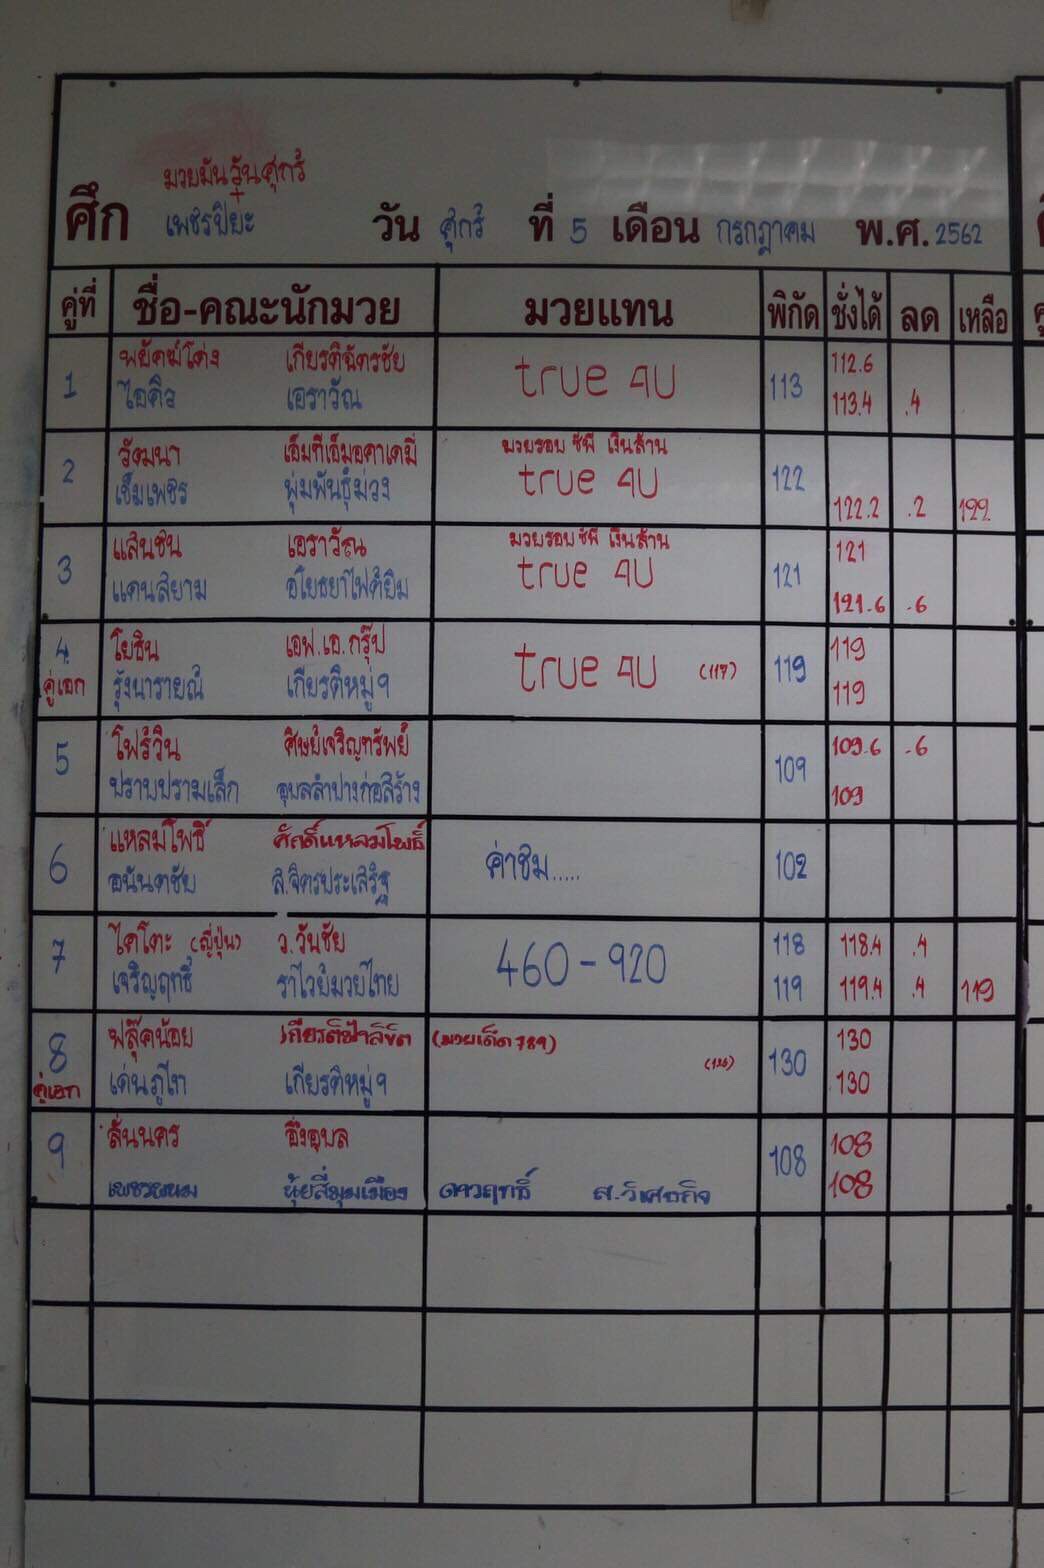 มวยมันวันศุกร์
ศึก เพชรปิยะ วัน ศุกร์ ที่ 5 เดือน กรกฎาคม พ.ศ. 2562
คู่ที่ ชื่อ-คณะนักมวย มวยแทน พิกัด ชั่งได้ ลด เหลือ
1 พยัคฆ์โค่ง เกียรติฉัตรชัย true 4U 113 112.6
ไอคิว เอราวัณ 113.4 .4
2 วัฒนา เอ็มทีเอ็มอคาเดมี่ มวยรอบ ชิง เงินล้าน
เข็มเพชร พุ่มพันธุ์ม่วง true 4U 122 122.2 .2 122
3 แสนชิน เอราวัณ มวยรอบ ชิง เงินล้าน 121
แดนสยาม อโยธยาไฟต์ยิม true 4U 121 121.6 .6
4 โยธิน เอฟ.เอ.กรุ๊ป true 4U (117) 119 119
คู่เอก รุ้งนารายณ์ เกียรติหมู่9 119
5 โฟร์วิน ศิษย์เจริญทรัพย์ 109 109.6 .6
ปราบปรามเล็ก อุบลลำปางก่อสร้าง 109
6 แหลมโพธิ์ ศักดิ์แหลมโพธิ์ ค่าชิม..... 102
อนันตชัย ส.จิตรประเสริฐ
7 ไคโตะ (ญี่ปุ่น) ว.วันชัย 460-920 118 118.4 .4
เจริญฤทธิ์ ราไวย์มวยไทย 119 119.4 .4 119
8 ฟลุ๊คน้อย (มวยเด็ด 789) 130 130
คู่เอก เด่นภูไท เกียรติหมู่9 130
9 สั่นนคร อึ่งอุบล 108 108
ส.วิเศษกิจ 108